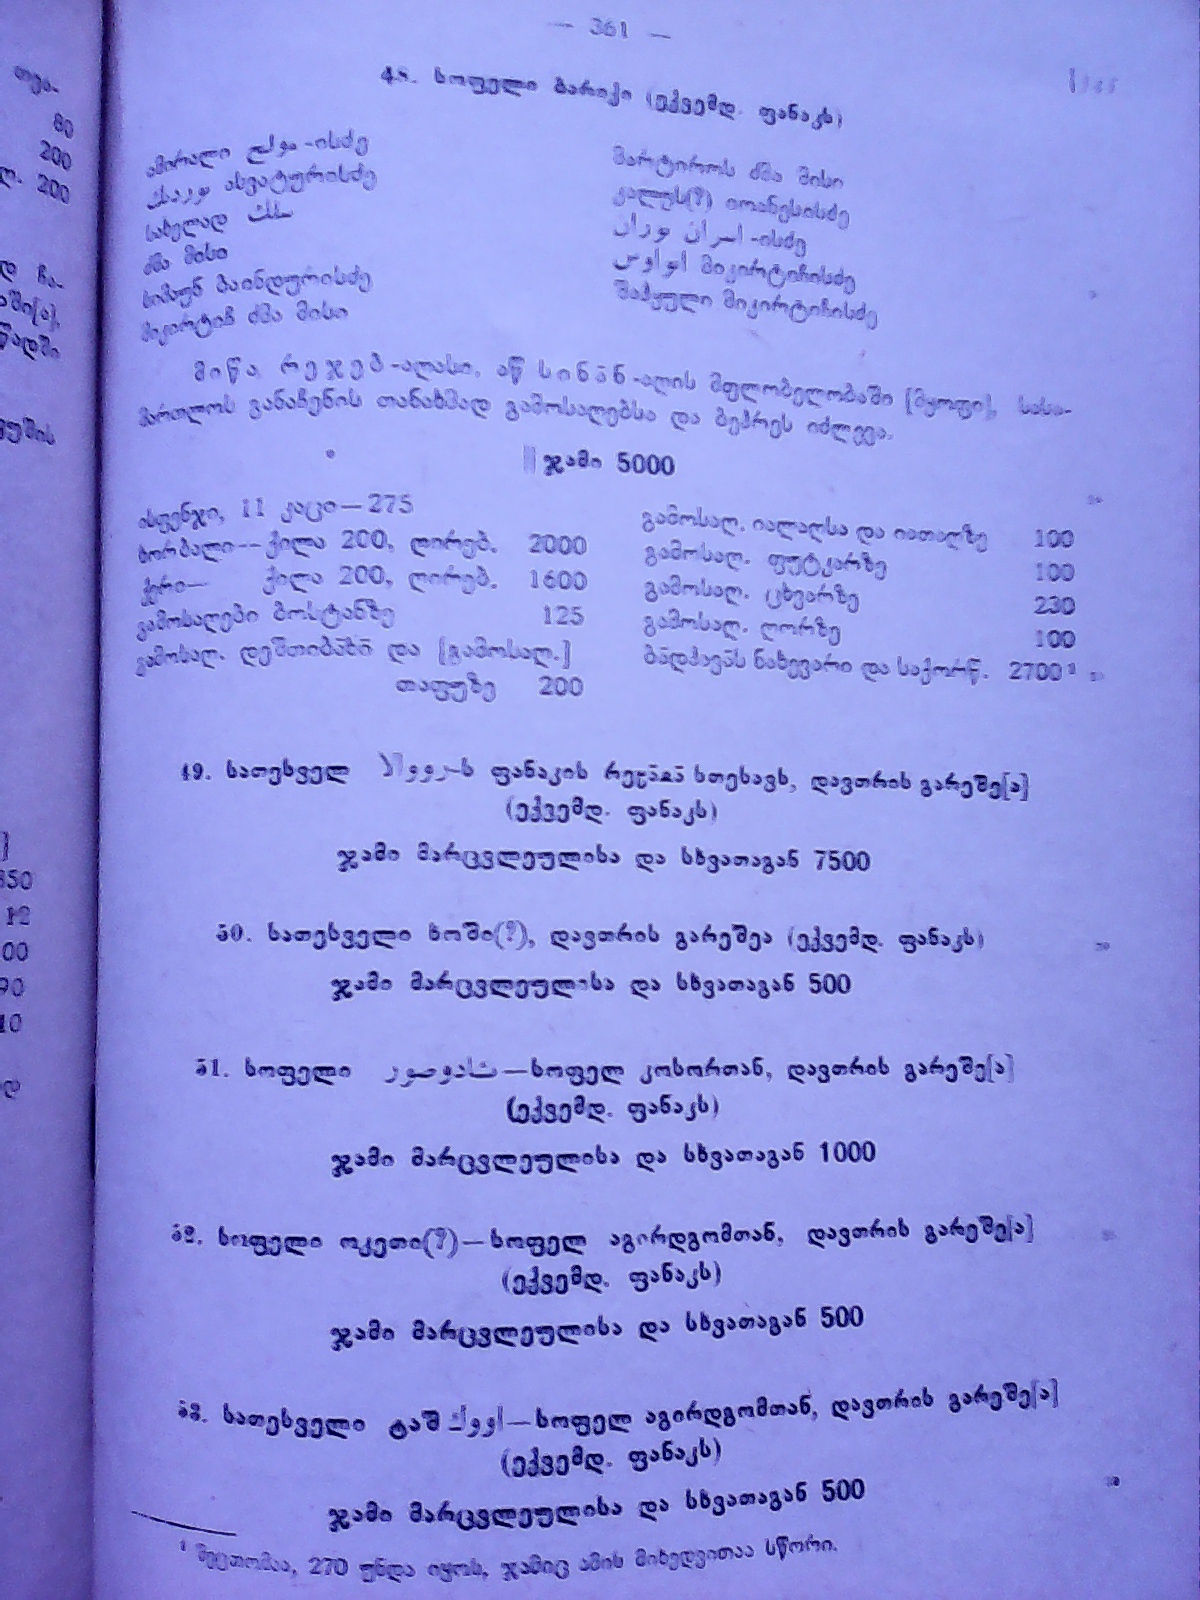 — 361 —
48. სოფელი ბარიქი (ექვემდ. ფანაკს)
ამირალი -ისძე
ასვატურისძე
სახელად
ძმა მისი
სიმაუნ ბაინდურისძე
მიკირტიჩ ძმა მისი
მარტიროს ძმა მისი
კალუს(?) იოანესისძე
ايران توران -ისძე
მიკირტიჩისძე
შაჰყული მიკირტიჩისძე
მიწა რეჯებ-აღასი, აწ სინან-აღის მფლობელობაში [მყოფი], სასა-
მართლოს განაჩენის თანახმად გამოსაღებსა და ბეჰრეს იძლევა.
|| ჯამი 5000
ისფენჯი, 11 კაცი — 275
ხორბალი — ქილა 200, ღირებ. 2000
ქერი — ქილა 200, ღირებ. 1600
გამოსაღები ბოსტანზე 125
გამოსაღ. დეშთიბანი და [გამოსაღ.]
თაფუზე 200
გამოსაღ. იალაღსა და იათაღზე 100
გამოსაღ. ფუტკარზე 100
გამოსაღ. ცხვარზე 230
გამოსაღ. ღორზე 100
ბადჰავას ნახევარი და საქორწ. 2700¹
49. სათესველ -ს ფანაკის რეჯაია სთესავს, დავთრის გარეშე[ა]
(ექვემდ. ფანაკს)
ჯამი მარცვლეულისა და სხვათაგან 7500
50. სათესველი ხოში(?), დავთრის გარეშეა (ექვემდ. ფანაკს)
ჯამი მარცვლეულისა და სხვათაგან 500
51. სოფელი — სოფელ კოსორთან, დავთრის გარეშე[ა]
(ექვემდ. ფანაკს)
ჯამი მარცვლეულისა და სხვათაგან 1000
52. სოფელი ოკეთი(?) — სოფელ აგირდგომთან, დავთრის გარეშე[ა]
(ექვემდ. ფანაკს)
ჯამი მარცვლეულისა და სხვათაგან 500
53. სათესველი ტაშ — სოფელ აგირდგომთან, დავთრის გარეშე[ა]
(ექვემდ. ფანაკს)
ჯამი მარცვლეულისა და სხვათაგან 500
¹ შეცთომაა, 270 უნდა იყოს, ჯამიც ამის მიხედვითაა სწორი.